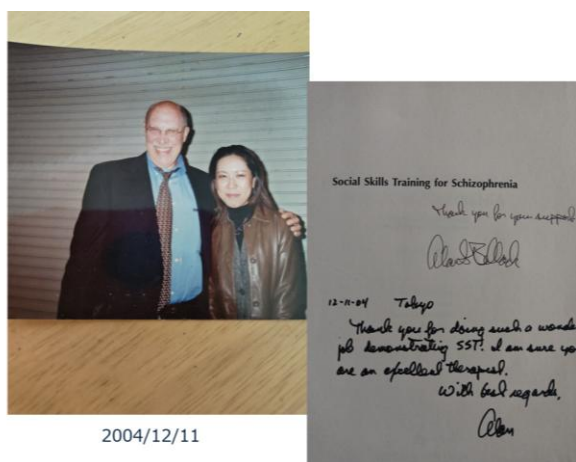 2004/12/11
Social Skills Training for Schizophrenia
Thank you for your support
12-11-04 Tokyo
Thank you for doing such a wonde
job demonstrating SST! I am sure you
are an excellent therapist.
With best regards,
Alan